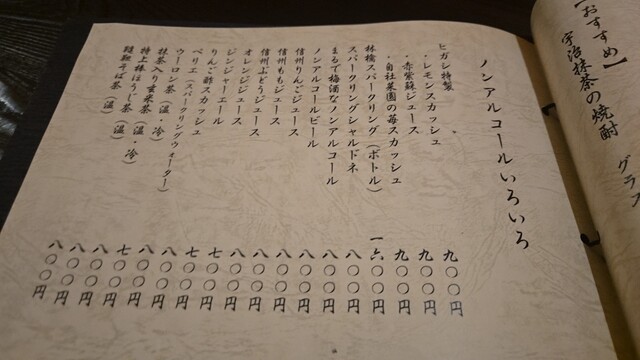 【おすすめ】
宇治抹茶の焼酎
グラス
ノンアルコールいろいろ
ヒガシ特製
・レモンスカッシュ 九〇〇円
・赤紫蘇ジュース 九〇〇円
・自社菜園の苺スカッシュ 九〇〇円
林檎スパークリング（ボトル） 一六〇〇円
スパークリングシャルドネ 八〇〇円
まるで梅酒なノンアルコール 八〇〇円
ノンアルコールビール 八〇〇円
信州りんごジュース 八〇〇円
信州ももジュース 八〇〇円
信州ぶどうジュース 八〇〇円
オレンジジュース 七〇〇円
ジンジャーエール 七〇〇円
りんご酢スカッシュ 八〇〇円
ペリエ（スパークリングウォーター） 八〇〇円
ウーロン茶（温・冷） 七〇〇円
抹茶入り玄米茶（温） 八〇〇円
特上棒ほうじ茶（温・冷） 八〇〇円
韃靼そば茶（温） 八〇〇円